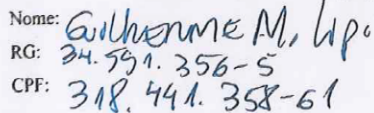 Nome: Guilherme M. Lipo
RG: 34.591.356-5
CPF: 318.441.358-61